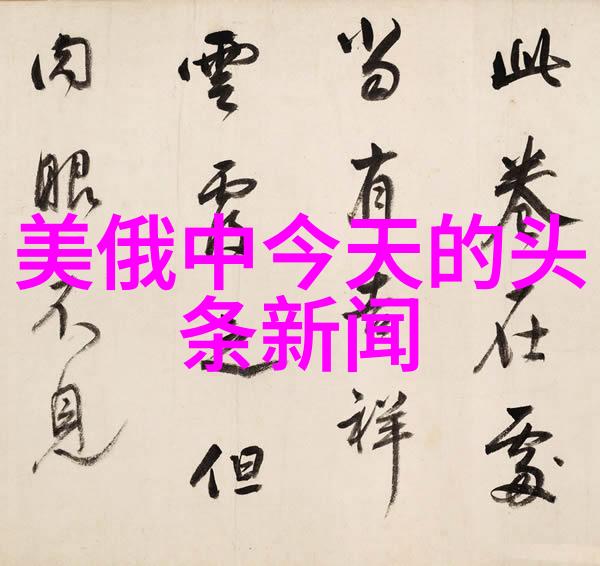 此卷在處
當有吉祥
雲覆之但
肉眼不見
美俄中今天的头
条新闻